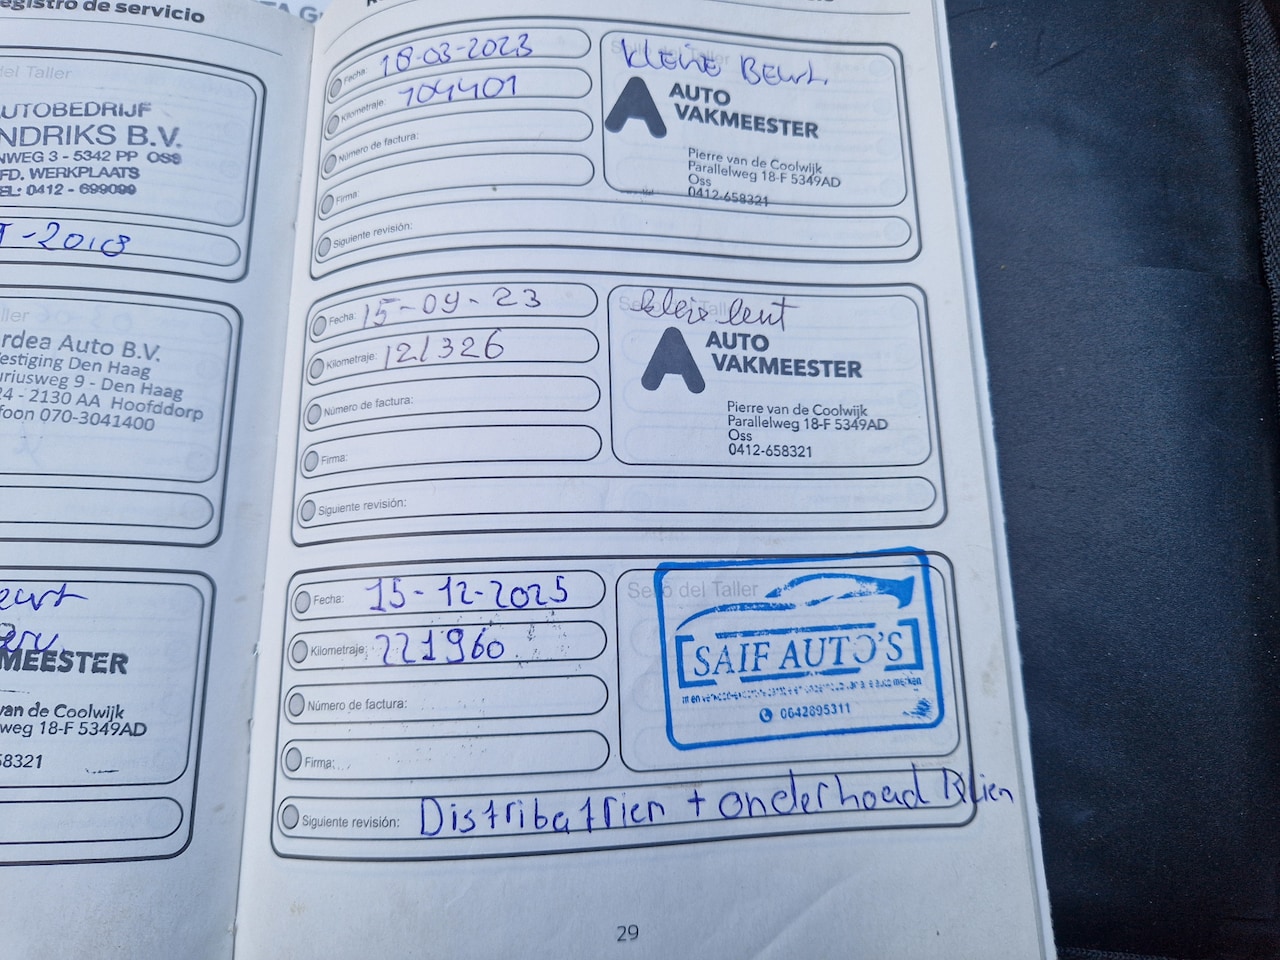 egistro de servicio
del Taller
UTOBEDRIJF
NDRIKS B.V.
NWEG 3 - 5342 PP OSS
FD. WERKPLAATS
EL: 0412 - 699099
-2018
ller
rdea Auto B.V.
estiging Den Haag
uriusweg 9 - Den Haag
24 - 2130 AA Hoofddorp
foon 070-3041400
eurt
MEESTER
van de Coolwijk
weg 18-F 5349AD
58321
Fecha: 18-03-2023
Kilometraje: 104401
Número de factura:
Firma:
Siguiente revisión:
Sello del Taller
kleine Beurt.
AUTO
VAKMEESTER
Pierre van de Coolwijk
Parallelweg 18-F 5349AD
Oss
0412-658321
Fecha: 15-09-23
Kilometraje: 121326
Número de factura:
Firma:
Siguiente revisión:
Sello del Taller
AUTO
VAKMEESTER
Pierre van de Coolwijk
Parallelweg 18-F 5349AD
Oss
0412-658321
Fecha: 15-12-2025
Kilometraje: 221960
Número de factura:
Firma:
Siguiente revisión: Distribatrien + onderhoad
Sello del Taller
SAIF AUTO'S
0642895311
29